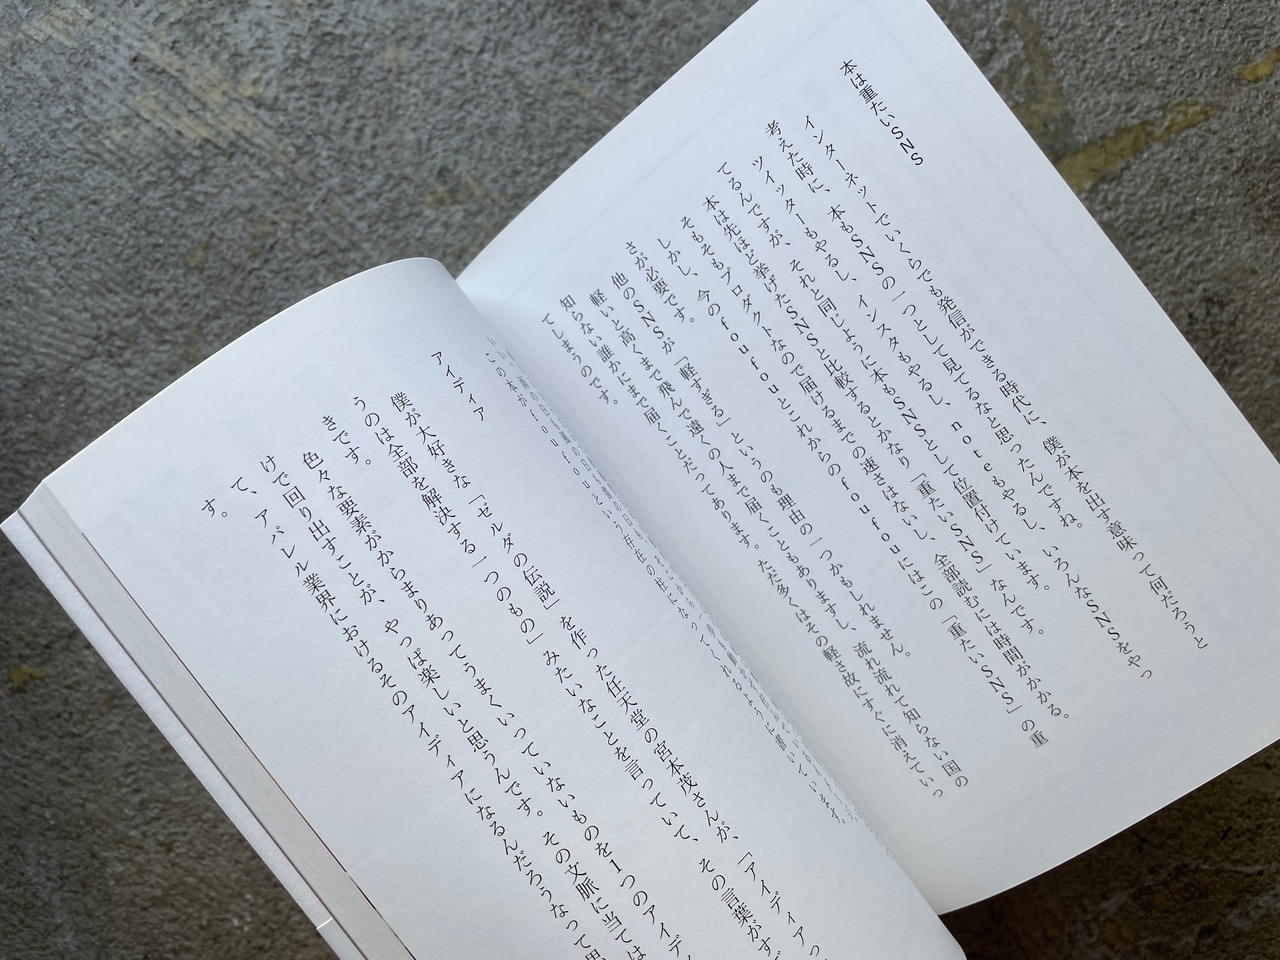 本は重たいSNS
インターネットでいくらでも発信ができる時代に、僕が本を出す意味って何だろうと
考えた時に、本もSNSの一つとして見てるなと思ったんですね。
ツイッターもやるし、インスタもやるし、noteもやるし、いろんなSNSをやっ
てるんですが、それと同じように本もSNSとして位置付けています。
本は先ほど挙げたSNSと比較するとかなり「重たいSNS」なんです。
そもそもプロダクトなので届けるまでの速さはないし、全部読むには時間がかかる。
しかし、今のfoufouとこれからのfoufouにはこの「重たいSNS」の重
さが必要です。
他のSNSが「軽すぎる」というのも理由の一つかもしれません。
軽いと高くまで飛んで遠くの人まで届くこともありますし、流れ流れて知らない国の
知らない誰かにまで届くことだってあります。ただ多くはその軽さ故にすぐに消えていっ
てしまうのです。
この本がfoufouという存在の柱になってくれるように書いています。
アイディア
僕が大好きな「ゼルダの伝説」を作った任天堂の宮本茂さんが、「アイディアっ
うのは全部を解決する一つのもの」みたいなことを言っていて、その言葉がす
きです。
色々な要素がからまりあってうまくいっていないものを1つのアイデ
けて回り出すことが、やっぱ楽しいと思うんです。その文脈に当ては
て、アパレル業界におけるそのアイディアになるんだろうなって思
す。